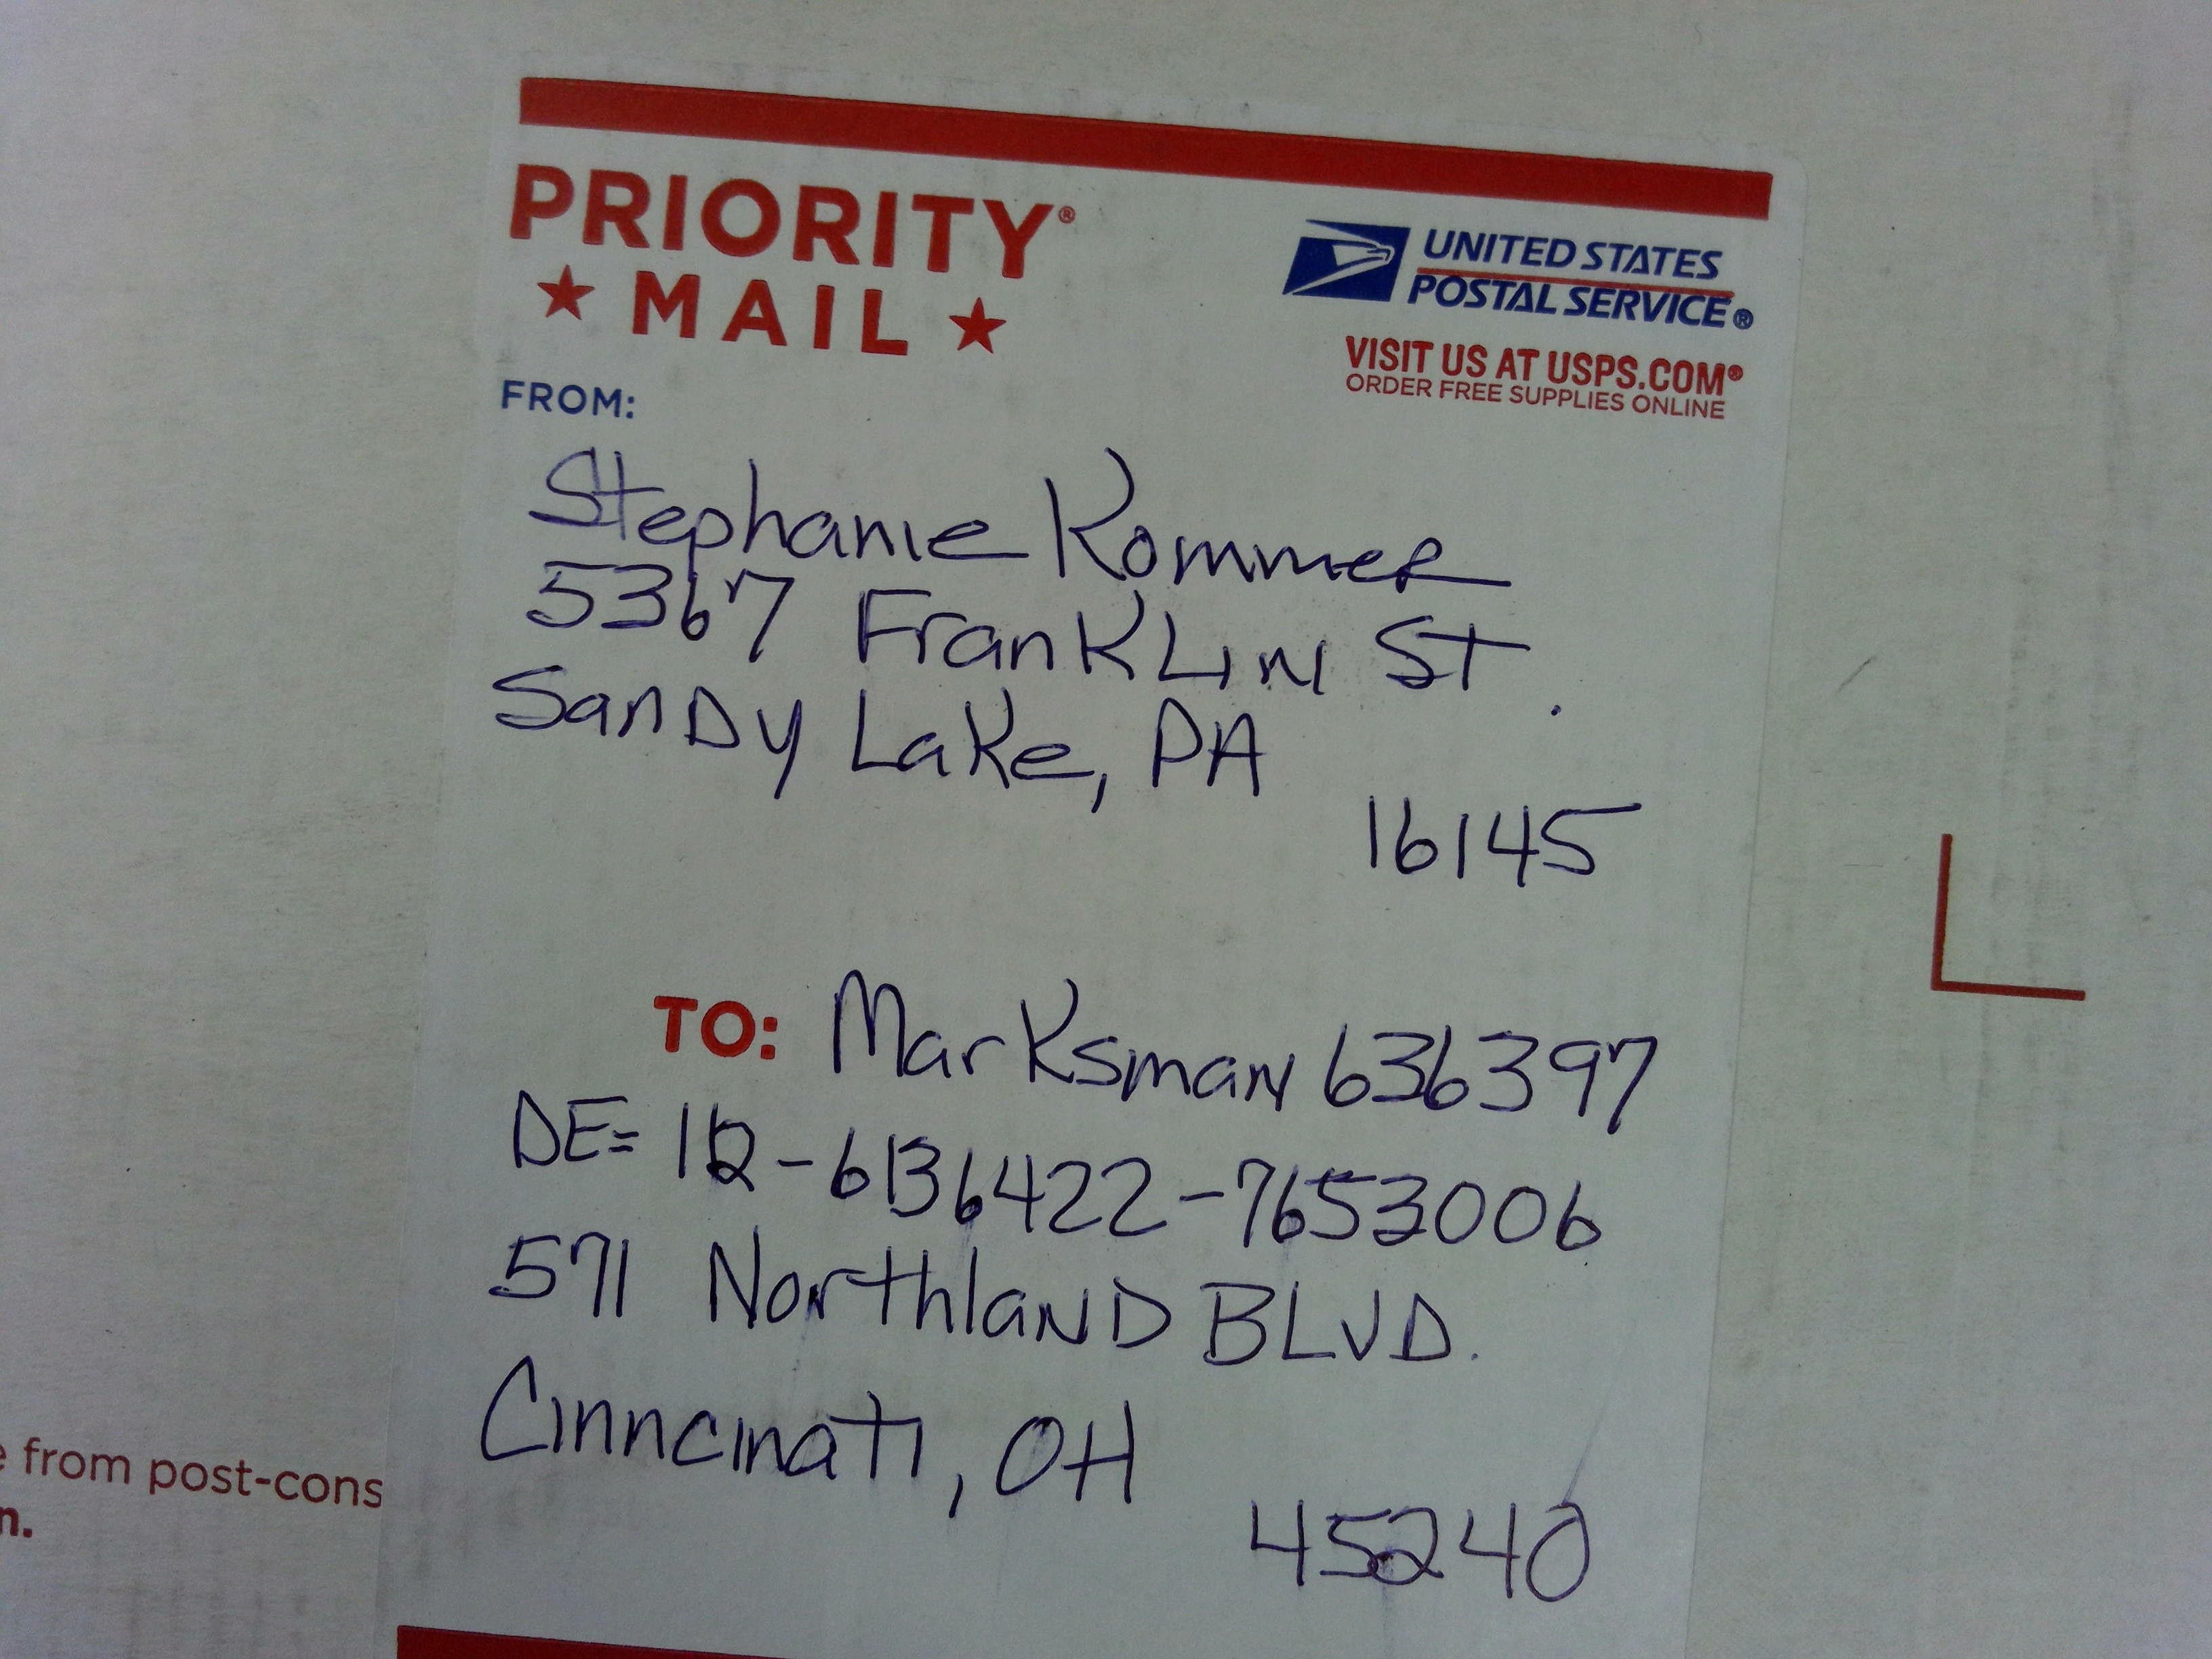 PRIORITY®
★ MAIL ★
UNITED STATES
POSTAL SERVICE®
VISIT US AT USPS.COM®
ORDER FREE SUPPLIES ONLINE
FROM:
Stephanie Kommer
5367 Franklin St.
Sandy Lake, PA
16145
TO: Marksman 636397
DE= 112-6136422-7653006
571 Northland BLVD.
Cinncinati, OH
45240
from post-cons
n.